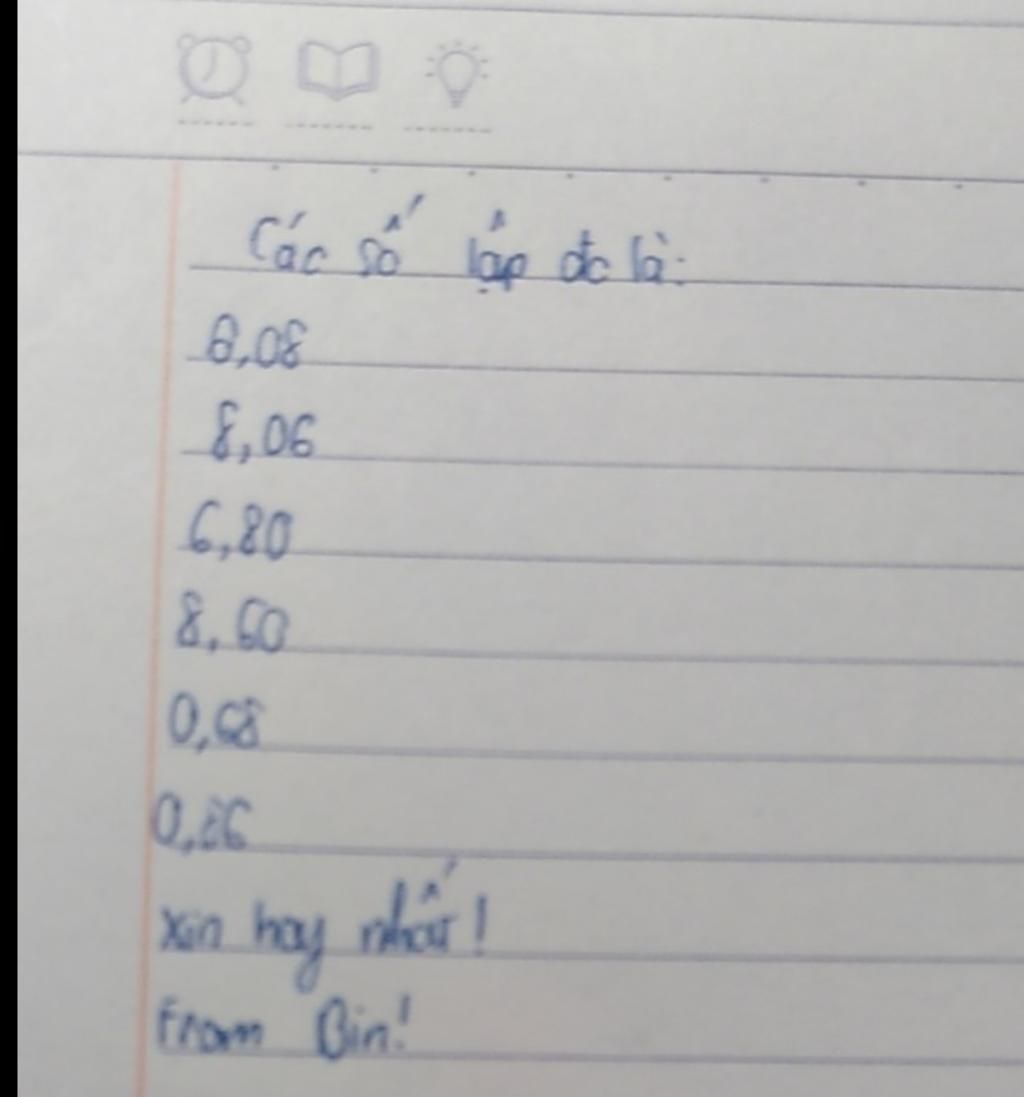 Các số lập đc là:
6,08
8,06
6,80
8,60
0,68
0,86
xin hay nhất!
From Bin!